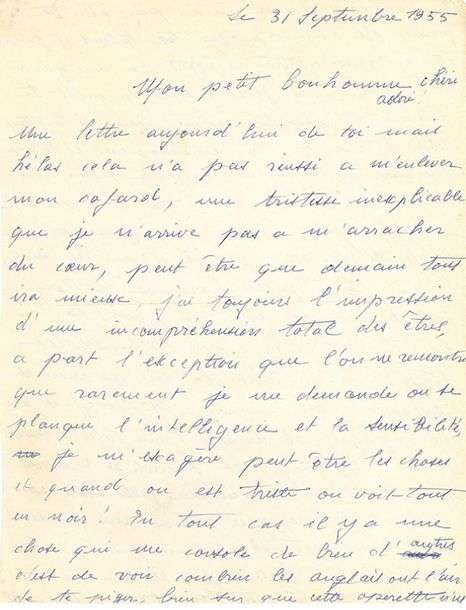 Le 31 Septembre 1955
Mon petit bonhomme chéri
adoré
Une lettre aujourd'hui de toi mais
hélas cela n'a pas réussi a m'enlever
mon cafard, une tristesse inexplicable
que je n'arrive pas a m'arracher
du cœur, peut être que demain tout
ira mieux, j'ai toujours l'impression
d'une incompréhension total des êtres,
a part l'exception que l'on ne remontre
que rarement je me demande ou se
planque l'intelligence et la sensibilité,
je m'exagère peut être les choses
et quand on est triste on voit tout
en noir! En tout cas il y a une
chose qui me console de bien d'autres
c'est de voir combien les anglais ont l'air
de te piger, bien sur que cette operette